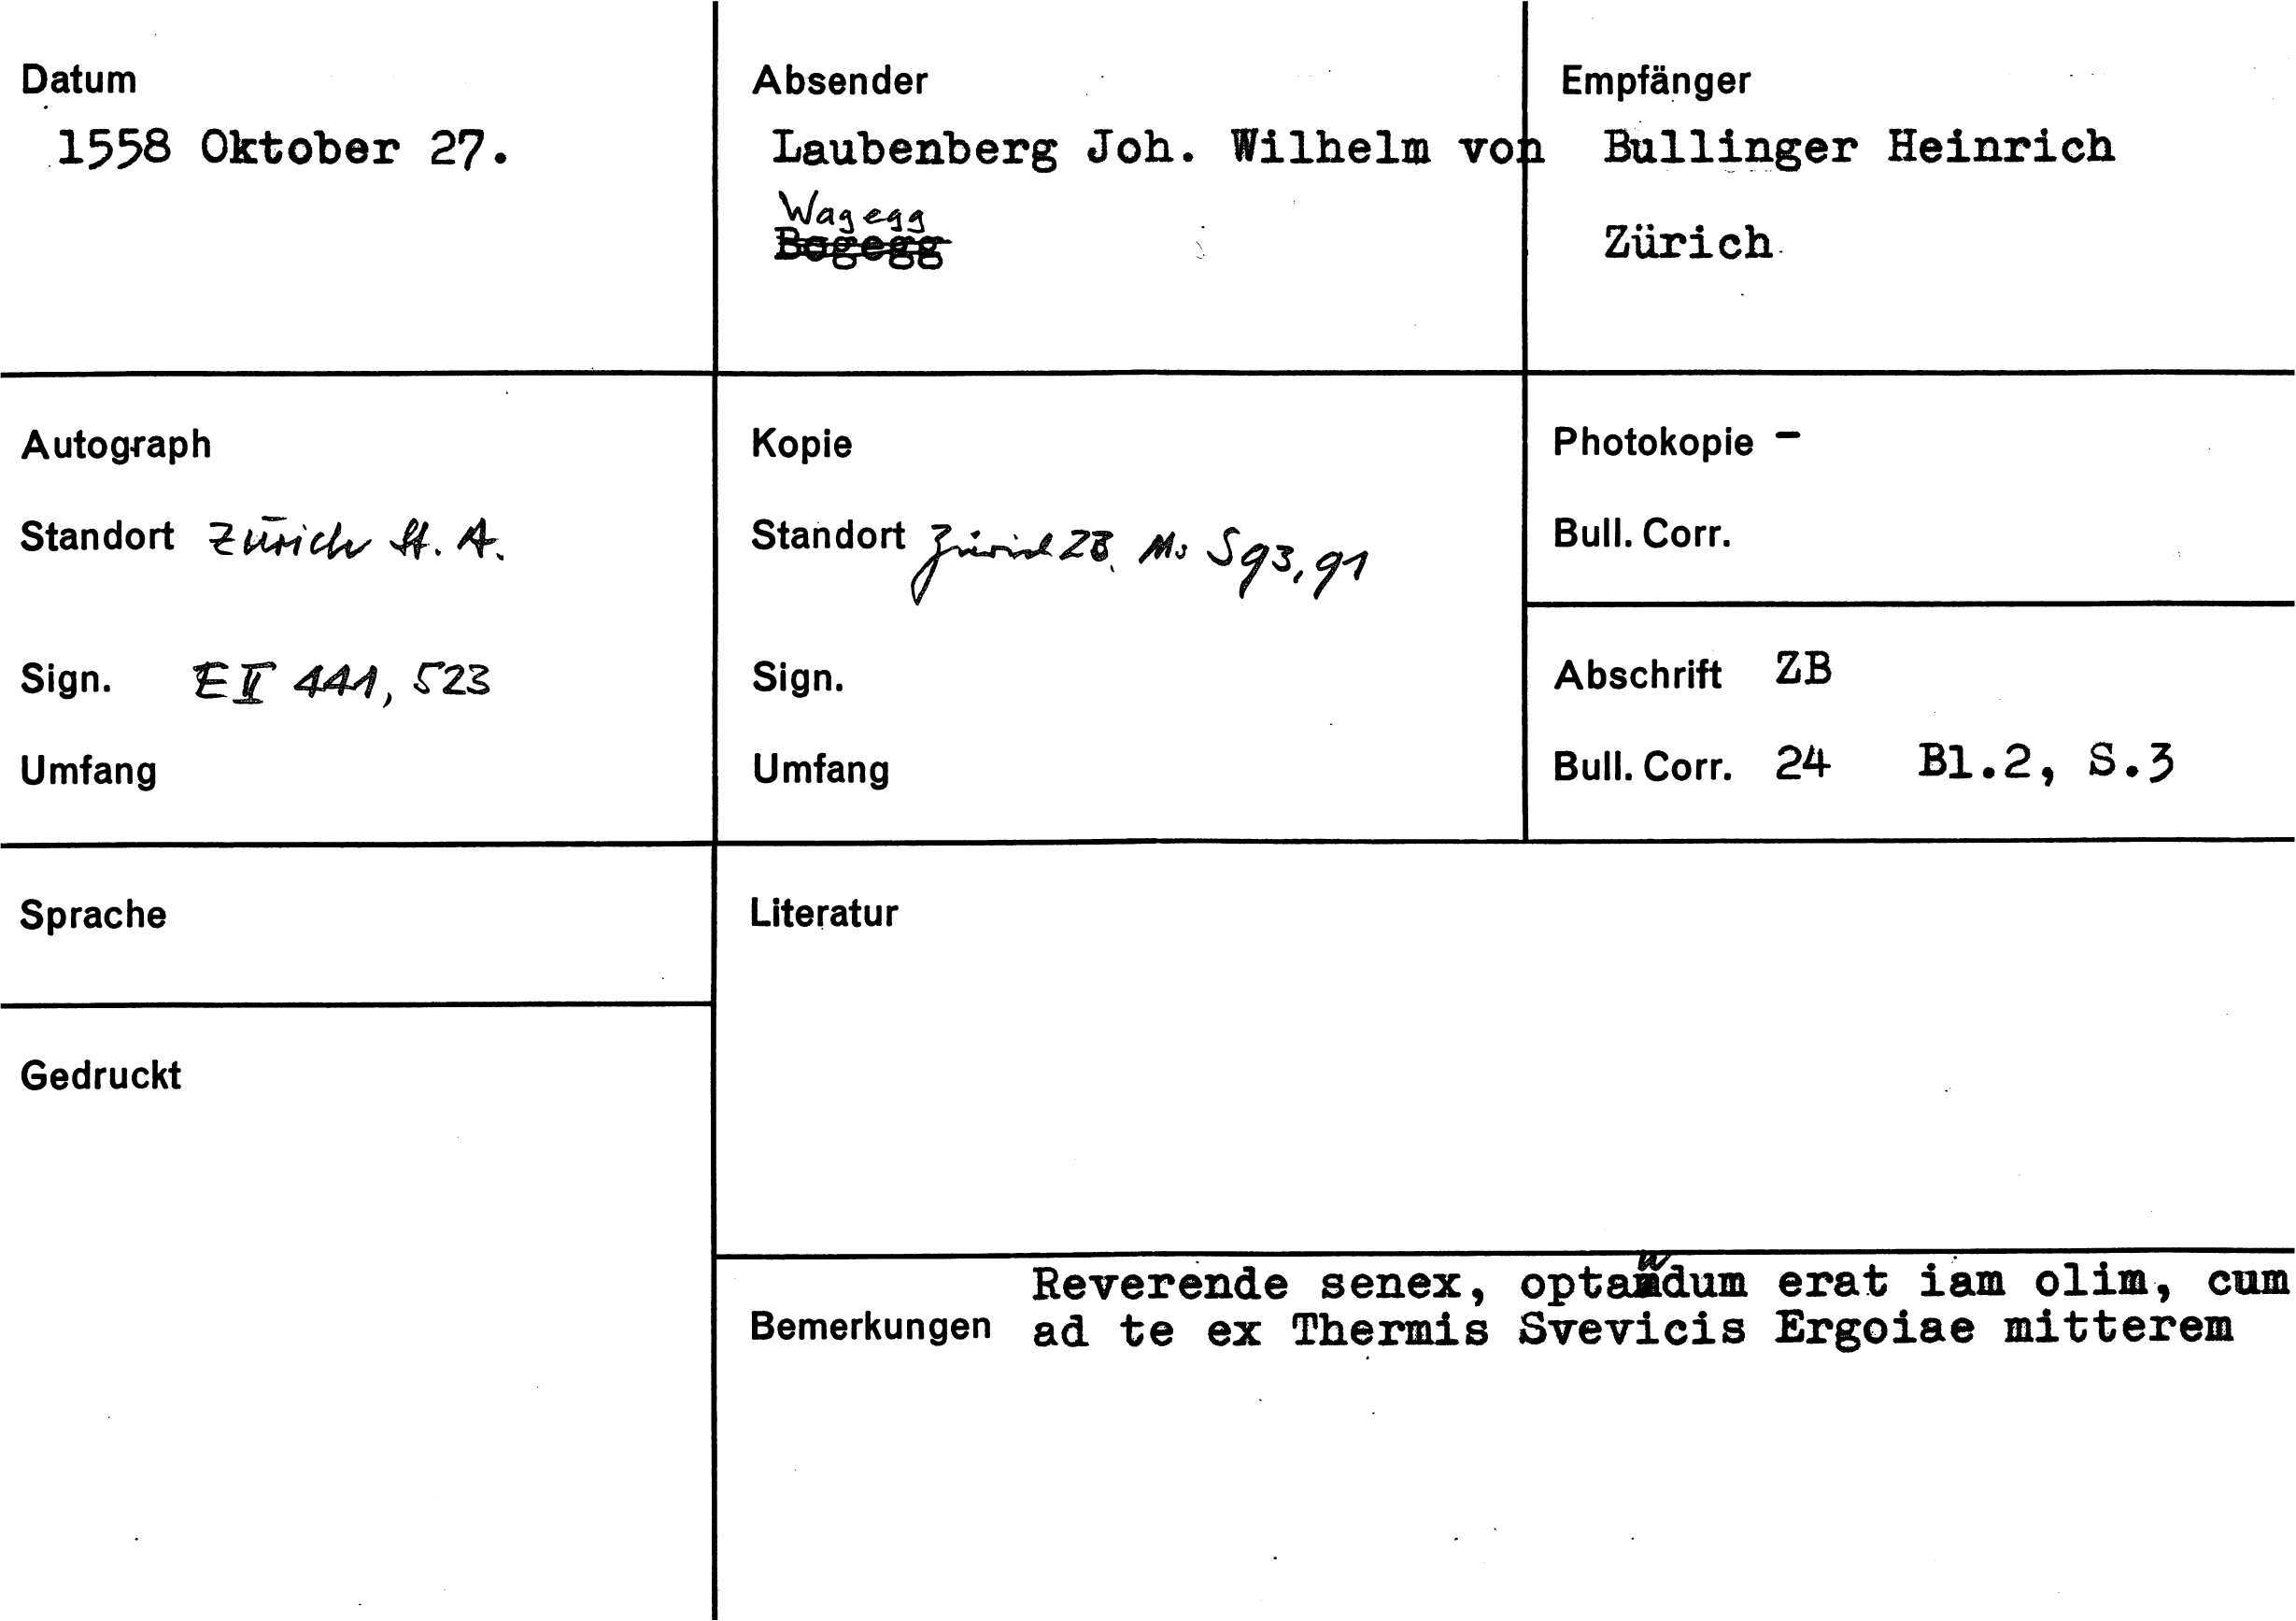 Datum
1558 Oktober 27.
Absender
Laubenberg Joh. Wilhelm von
Wagegg
Bagegg
Empfänger
Bullinger Heinrich
Zürich
Autograph
Standort Zürich St. A.
Sign. E II 441, 523
Umfang
Kopie
Standort Zürich ZB Ms S 93, 91
Sign.
Umfang
Photokopie -
Bull. Corr.
Abschrift ZB
Bull. Corr. 24 Bl.2, S.3
Sprache
Gedruckt
Literatur
Bemerkungen
Reverende senex, optandum erat iam olim, cum
ad te ex Thermis Svevicis Ergoiae mitterem